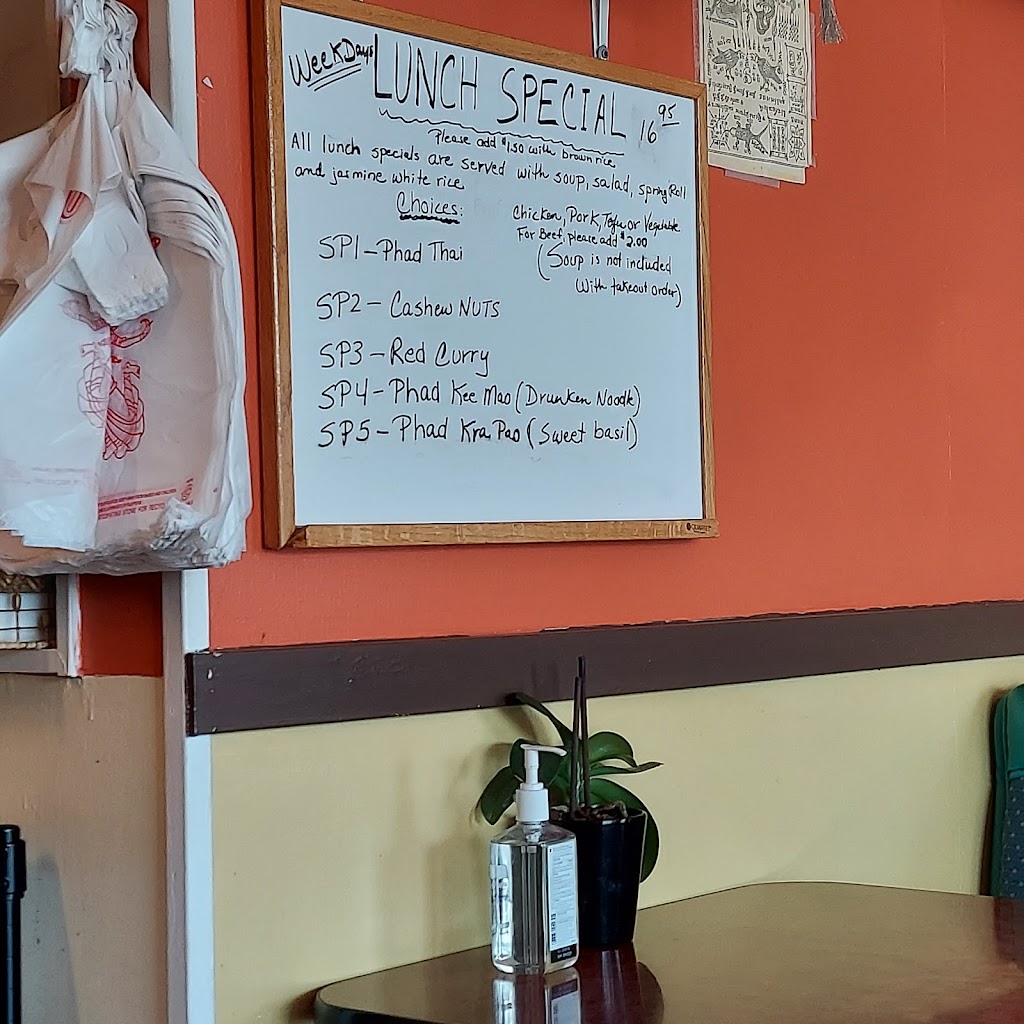 WeekDays LUNCH SPECIAL 16 95
Please add $1.50 with brown rice.
All lunch specials are served with soup, salad, spring Roll
and jasmine white rice
Choices:
Chicken, Pork, Tofu or Vegetable
For Beef, please add $2.00
(Soup is not included
with takeout order)
SP1-Phad Thai
SP2- Cashew NUTS
SP3-Red Curry
SP4-Phad Kee Mao (Drunken Noodle)
SP5-Phad Kra Pao (Sweet basil)
QUARTET